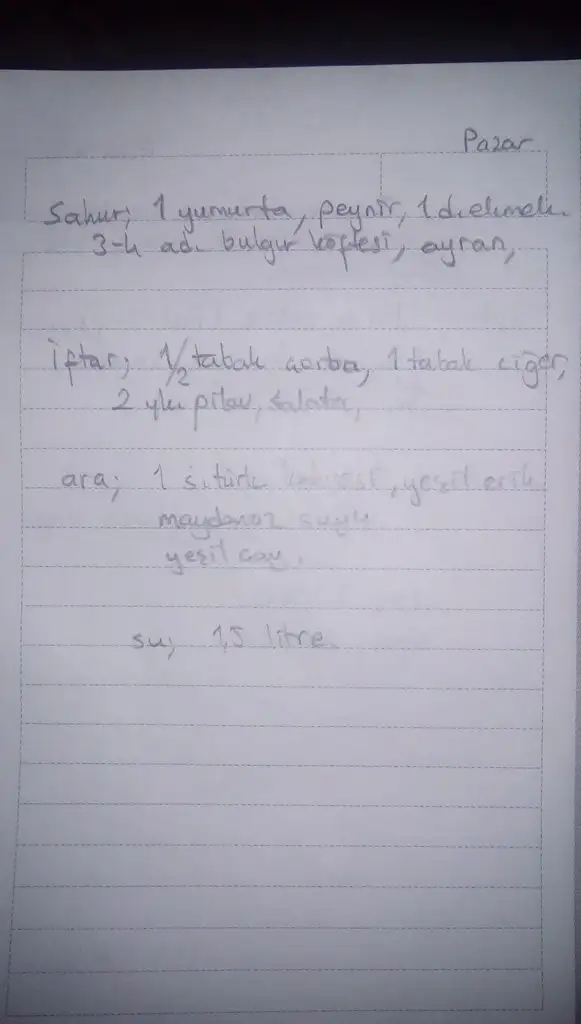 Pazar
Sahur; 1 yumurta, peynir, 1 d.ekmek.
3-4 ad. bulgur köftesi, ayran,
iftar; 1/2 tabak çorba, 1 tabak ciğer,
2 yk pilav, salata,
ara; 1 ş.türk kahvesi, yeşil erik
maydanoz suyu
yeşil çay.
su; 1,5 litre